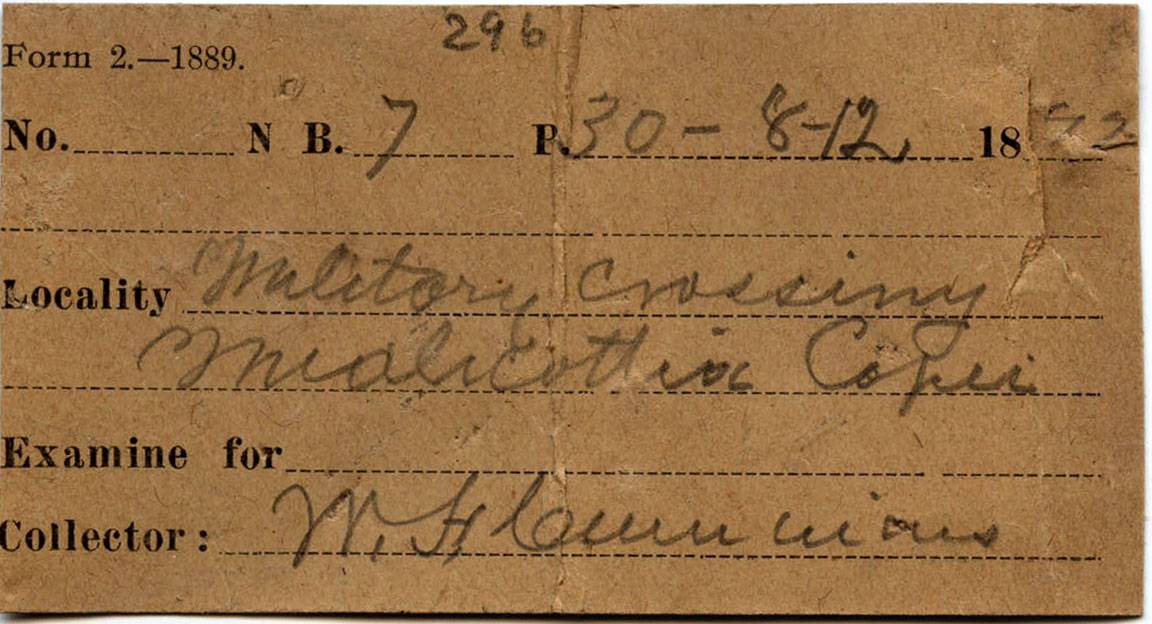 296
Form 2.—1889.
No. N B. 7 P. 30 - 8-12 18 92
Locality Military Crossing
Medlicottia Copei
Examine for
Collector: W. F. Cummins